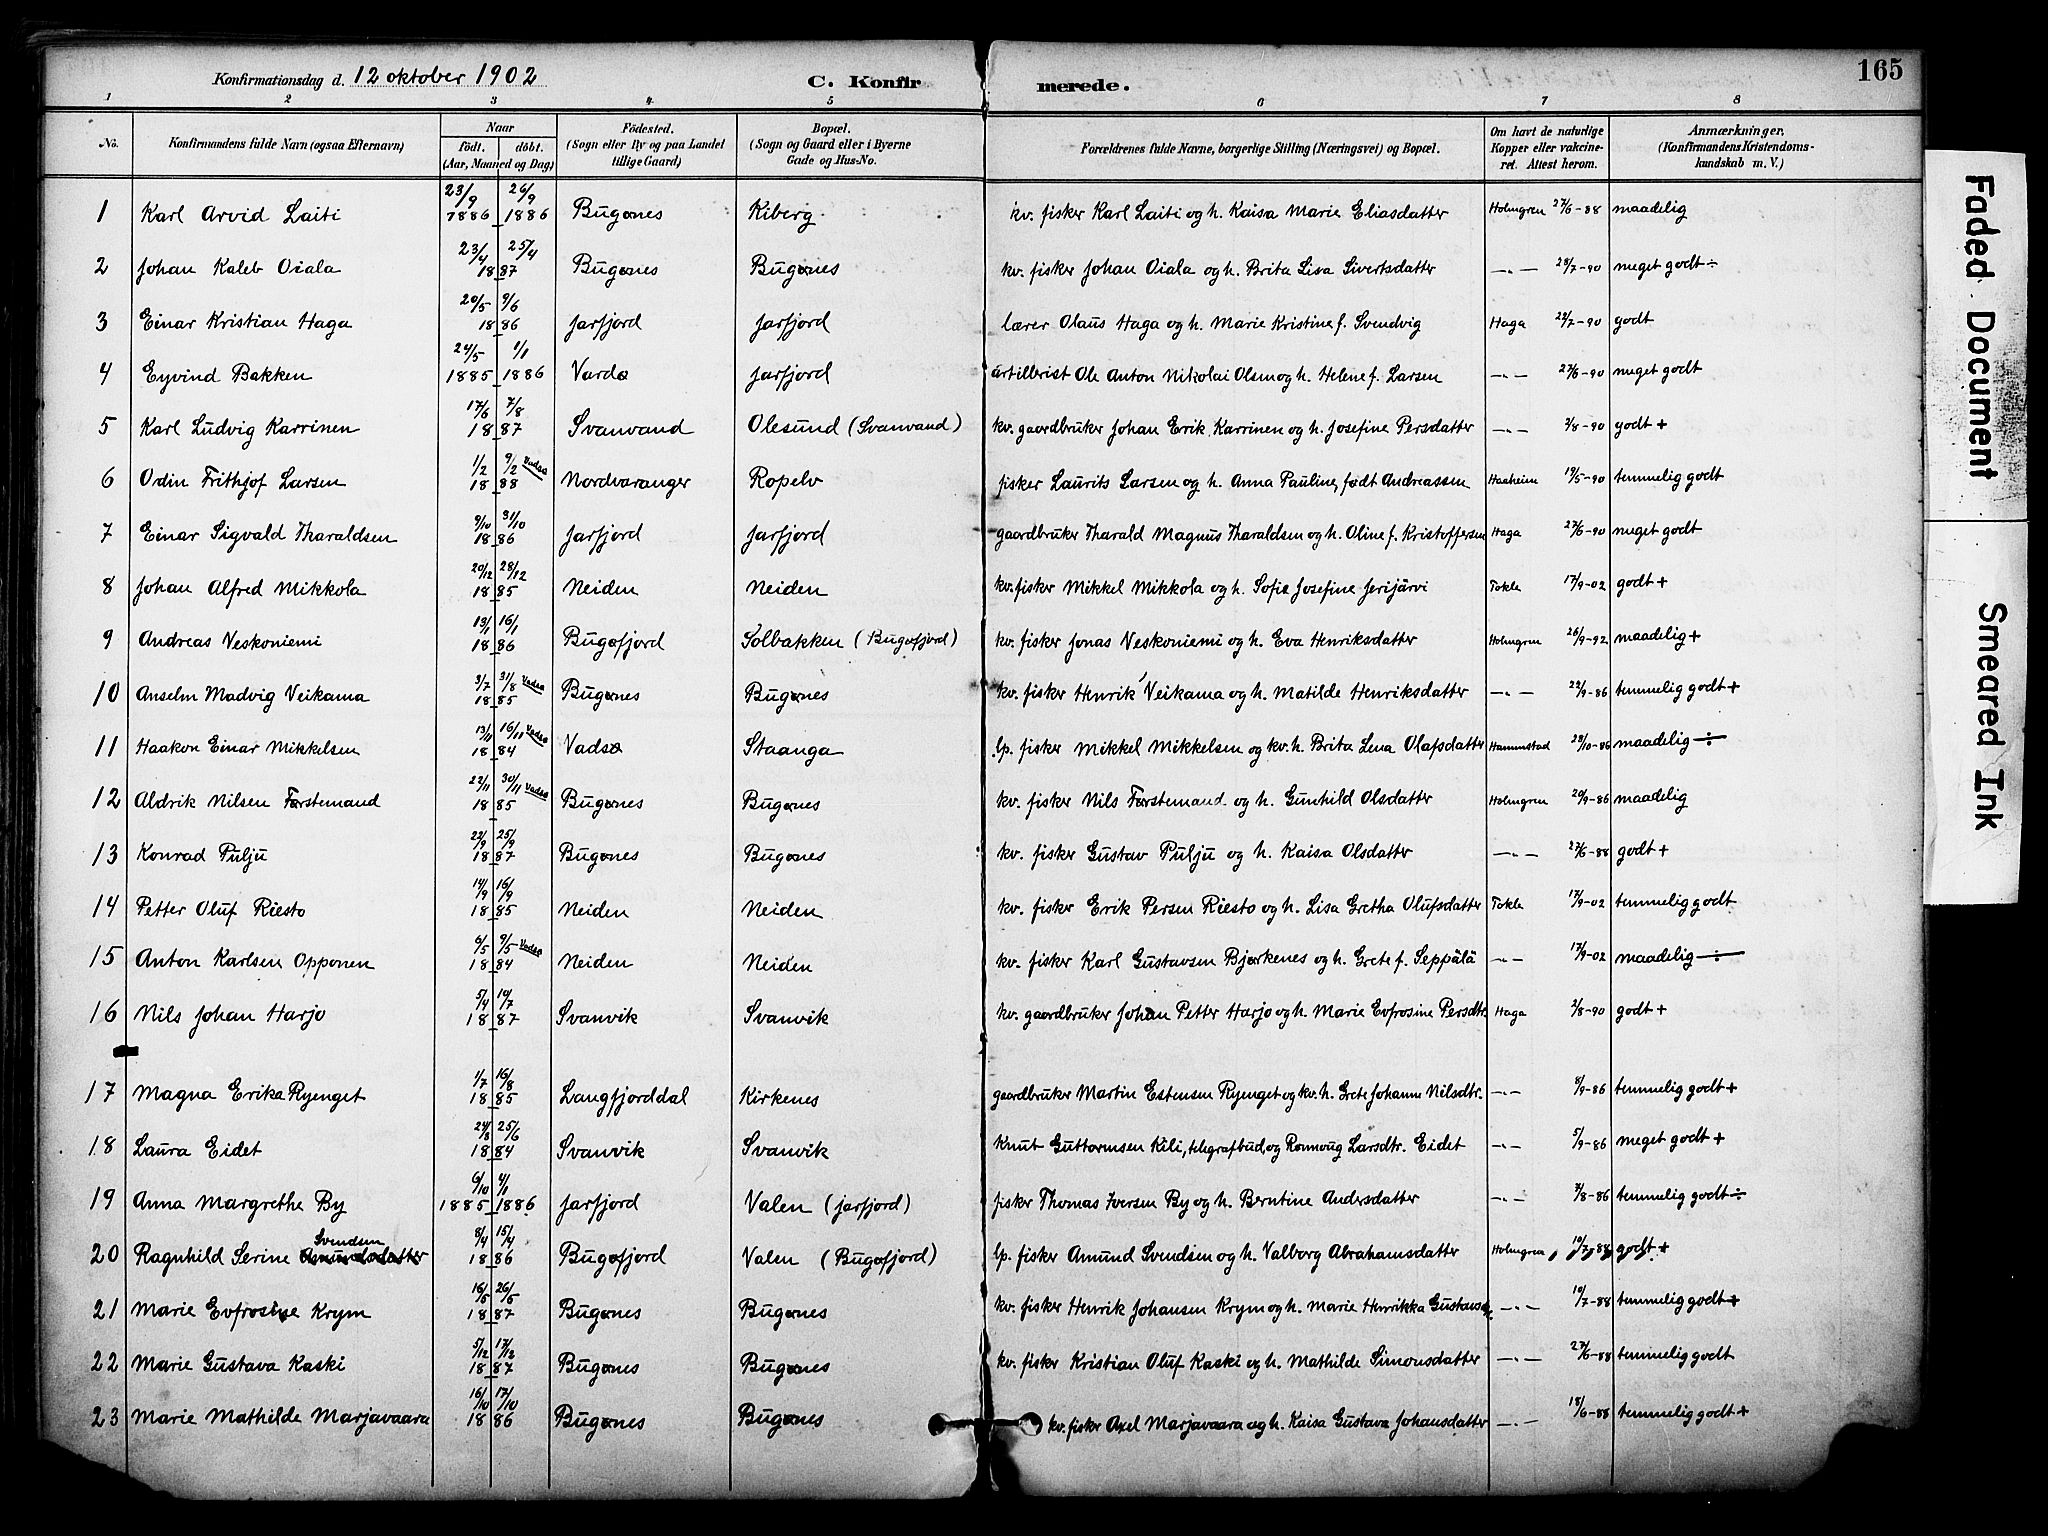 Konfirmationsdag d. 12 oktober 1902 C. Konfirmerede. 165
1 2 3 4 5 6 7 8
No. Konfirmandens fulde Navn (ogsaa Efternavn) Naar født. døbt. (Aar, Maaned og Dag) Födested. (Sogn eller By og paa Landet tillige Gaard) Bopæl. (Sogn og Gaard eller i Byerne Gade og Hus-No. Forældrenes fulde Navne, borgerlige Stilling (Næringsvei) og Bopæl. Om havt de naturlige Kopper eller vakcineret. Attest herom. Anmærkninger. (Konfirmandens Kristendomskundskab m. V.)
1 Karl Arvid Laiti 23/9 1886 26/9 1886 Bugønes Kiberg kv. fisker Karl Laiti og h. Kaisa Marie Eliasdatter Holmgren 27/6-88 maadelig
2 Johan Kaleb Oiala 23/4 25/4 1887 Bugønes Bugønes kv. fisker Johan Oiala og h. Brita Lisa Sivertsdatter —„— 28/7-90 meget godt ÷
3 Einar Kristian Haga 20/5 9/6 1886 Jarfjord Jarfjord lærer Olaus Haga og h. Marie Kristine f. Svendvig Haga 22/7-90 godt
4 Eyvind Bakken 24/5 1885 1/1 1886 Vardø Jarfjord artillerist Ole Anton Nikolai Olsen og h. Helene f. Larsen —„— 27/6-90 meget godt
5 Karl Ludvig Karrinen 17/6 7/8 1887 Svanvand Olesund (Svanvand) kv. gaardbruker Johan Erik Karrinen og h. Josefine Persdatter —„— 2/8-90 godt +
6 Odin Frithjof Larsen 1/2 9/2 Vadsø 1888 Nordvaranger Ropelv fisker Laurits Larsen og h. Anna Pauline, født Andreassen Haaheim 19/5-90 temmelig godt
7 Einar Sigvald Tharaldsen 9/10 31/10 1886 Jarfjord Jarfjord gaardbruker Tharald Magnus Tharaldsen og h. Oline f. Kristoffersen Haga 27/6-90 meget godt
8 Johan Alfred Mikkola 20/12 28/12 1885 Neiden Neiden kv. fisker Mikkel Mikkola og h. Sofie Josefine Jerijärvi Tokle 17/9-02 godt +
9 Andreas Veskoniemi 13/1 16/1 1886 Bugøfjord Solbakken (Bugøfjord) kv. fisker Jonas Veskoniemi og h. Eva Henriksdatter Holmgren 26/9-92 maadelig +
10 Anselm Madvig Veikama 3/7 31/8 Vadsø 1885 Bugønes Bugønes kv. fisker Henrik Veikama og h. Matilde Henriksdatter —„— 22/9-86 temmelig godt +
11 Haakon Einar Mikkelsen 13/11 16/11 Vadsø 1884 Vadsø Staanga lp. fisker Mikkel Mikkelsen og kv. h. Brita Lena Olafsdatter Hammstad 28/10-86 maadelig ÷
12 Aldrik Nilsen Førstemand 22/11 30/11 Vadsø 1885 Bugønes Bugønes kv. fisker Nils Førstemand og h. Gunhild Olsdatter Holmgren 20/9-86 maadelig
13 Konrad Pulju 22/9 25/9 1887 Bugønes Bugønes kv. fisker Gustav Pulju og h. Kaisa Olsdatter —„— 27/6-88 godt +
14 Petter Oluf Riesto 14/9 16/9 1885 Neiden Neiden kv. fisker Erik Persen Riesto og h. Lisa Gretha Olufsdatter Tokle 17/9-02 temmelig godt
15 Anton Karlsen Opponen 6/5 9/5 Vadsø 1884 Neiden Neiden kv. fisker Karl Gustavsen Bjørkenes og h. Grete f. Seppälä —„— 17/9-02 maadelig ÷
16 Nils Johan Harjo 5/4 10/7 1887 Svanvik Svanvik kv. gaardbruker Johan Petter Harjo og h. Marie Eufrosine Persdtr. Haga 2/8-90 godt +
17 Magna Erika Ryenget 1/7 16/8 1885 Langfjorddal Kirkenes gaardbruker Martin Estensen Ryenget og kv. h. Grete Johanne Nilsdtr. —„— 8/9-86 temmelig godt +
18 Laura Eidet 24/3 25/6 1884 Svanvik Svanvik Knut Guttormsen Kili, telegrafbud, og Rønnoug Larsdtr. Eidet —„— 5/9-86 meget godt +
19 Anna Margrethe By 6/10 1885 4/1 1886 Jarfjord Valen (Jarfjord) fisker Thomas Iversen By og h. Berntine Andersdatter —„— 7/8-86 temmelig godt ÷
20 Ragnhild Serine Amundsdatter Svendsen 8/4 15/4 1886 Bugøfjord Valen (Bugøfjord) lp. fisker Amund Svendsen og h. Valborg Abrahamsdatter Holmgren 10/7-88 godt +
21 Marie Evfrosine Krym 16/5 26/5 1887 Bugønes Bugønes kv. fisker Henrik Johansen Krym og h. Marie Henrikka Gustavsd. —„— 10/7-88 temmelig godt +
22 Marie Gustava Kaski 5/12 17/12 1887 Bugønes Bugønes kv. fisker Kristian Oluf Kaski og h. Mathilde Simonsdatter —„— 27/6-88 temmelig godt
23 Marie Mathilde Marjavaara 16/10 17/10 1886 Bugønes Bugønes kv. fisker Axel Marjavaara og h. Kaisa Gustava Johansdatter —„— 18/6-88 temmelig godt +
Faded Document
Smeared Ink